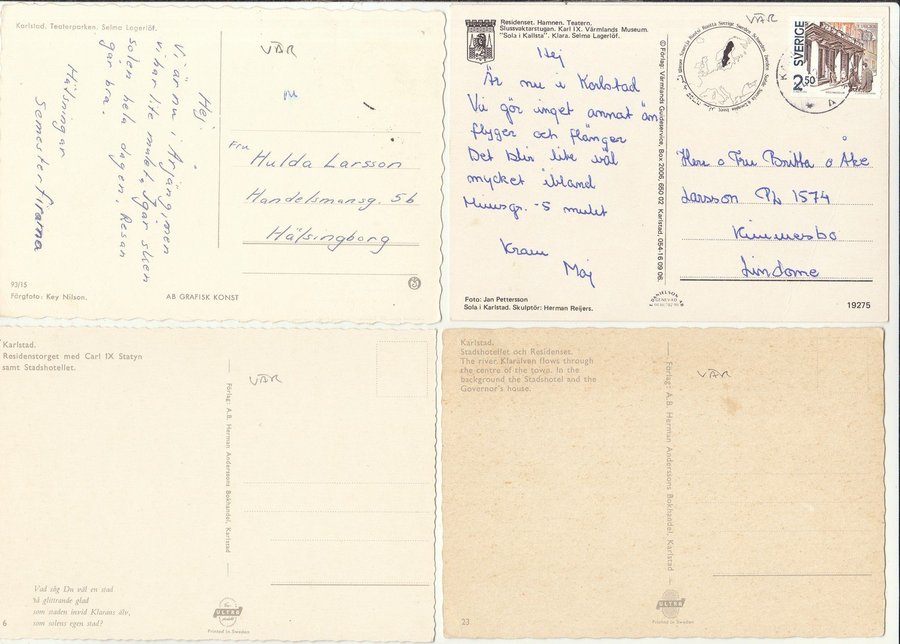 Karlstad. Teaterparken. Selma Lagerlöf.
VÄR
Hej.
Vi är nu i Årjäng, men
vi har lite mulet, igår sken
solen hela dagen. Resan
går bra.
Hälsningar
Semesterfirarna
Fru
Hulda Larsson
Handelsmansg. 5b
Hälsingborg
93/15
Färgfoto: Key Nilson.
AB GRAFISK KONST
Residenset. Hamnen. Teatern.
Slussvaktarstugan. Karl IX. Värmlands Museum.
"Sola i Kallsta". Klara. Selma Lagerlöf.
Hej
Är nu i Karlstad
Vi gör inget annat än
flyger och flänger
Det blir lite väl
mycket ibland
-5 mulet
Kram
Maj
Foto: Jan Pettersson
Sola i Karlstad. Skulptör: Herman Reijers.
© Förlag: Värmlands Guideservice, Box 2006, 650 02 Karlstad, 054-16 09 06.
VÄR
SVERIGE
2.50
K
A
Herr o Fru Britta o Åke
Larsson PL 1574
Kimmersbo
Lindome
19275
Karlstad.
Residenstorget med Carl IX Statyn
samt Stadshotellet.
VÄR
Förlag: A.B. Herman Anderssons Bokhandel, Karlstad
Vad säg Du väl en stad
så glittrande glad
som staden invid Klarans älv,
som solens egen stad?
6
ULTRA
Printed in Sweden
Karlstad.
Stadshotellet och Residenset.
The river Klarälven flows through
the centre of the town. In the
background the Stadshotel and the
Governor's house.
VÄR
Förlag: A.B. Herman Anderssons Bokhandel, Karlstad
23
ULTRA
Printed in Sweden